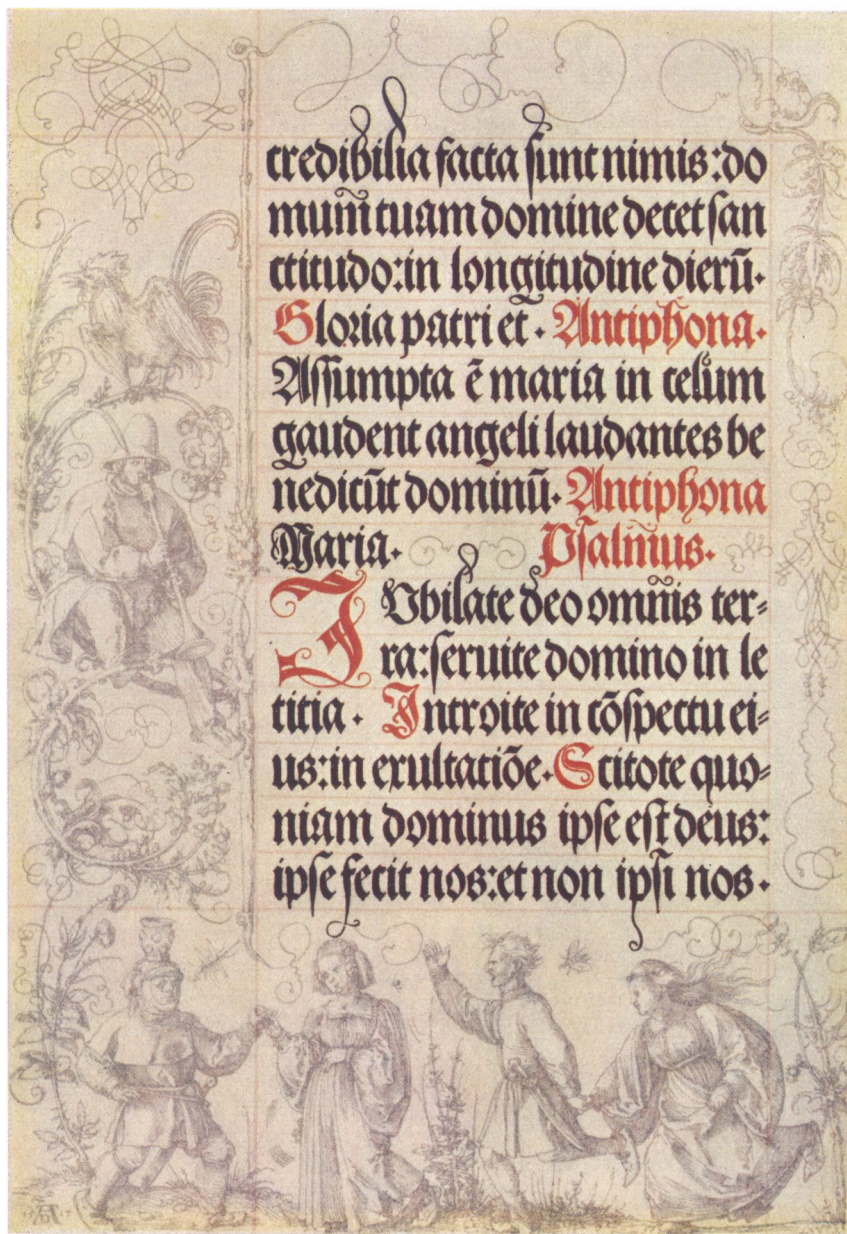 credibilia facta sunt nimis: do
mum̄ tuam domine decet san
ctitudo: in longitudine dierū.
Gloria patri et . Antiphona.
Assumpta ē maria in celum
gaudent angeli laudantes be
nedicūt dominū. Antiphona
Maria. Psalmus.
IVbilate deo omnis ter=
ra: seruite domino in le
titia . Introite in cōspectu ei=
us: in exultatiōe. Scitote quo=
niam dominus ipse est deus:
ipse fecit nos: et non ipsi nos .
AD